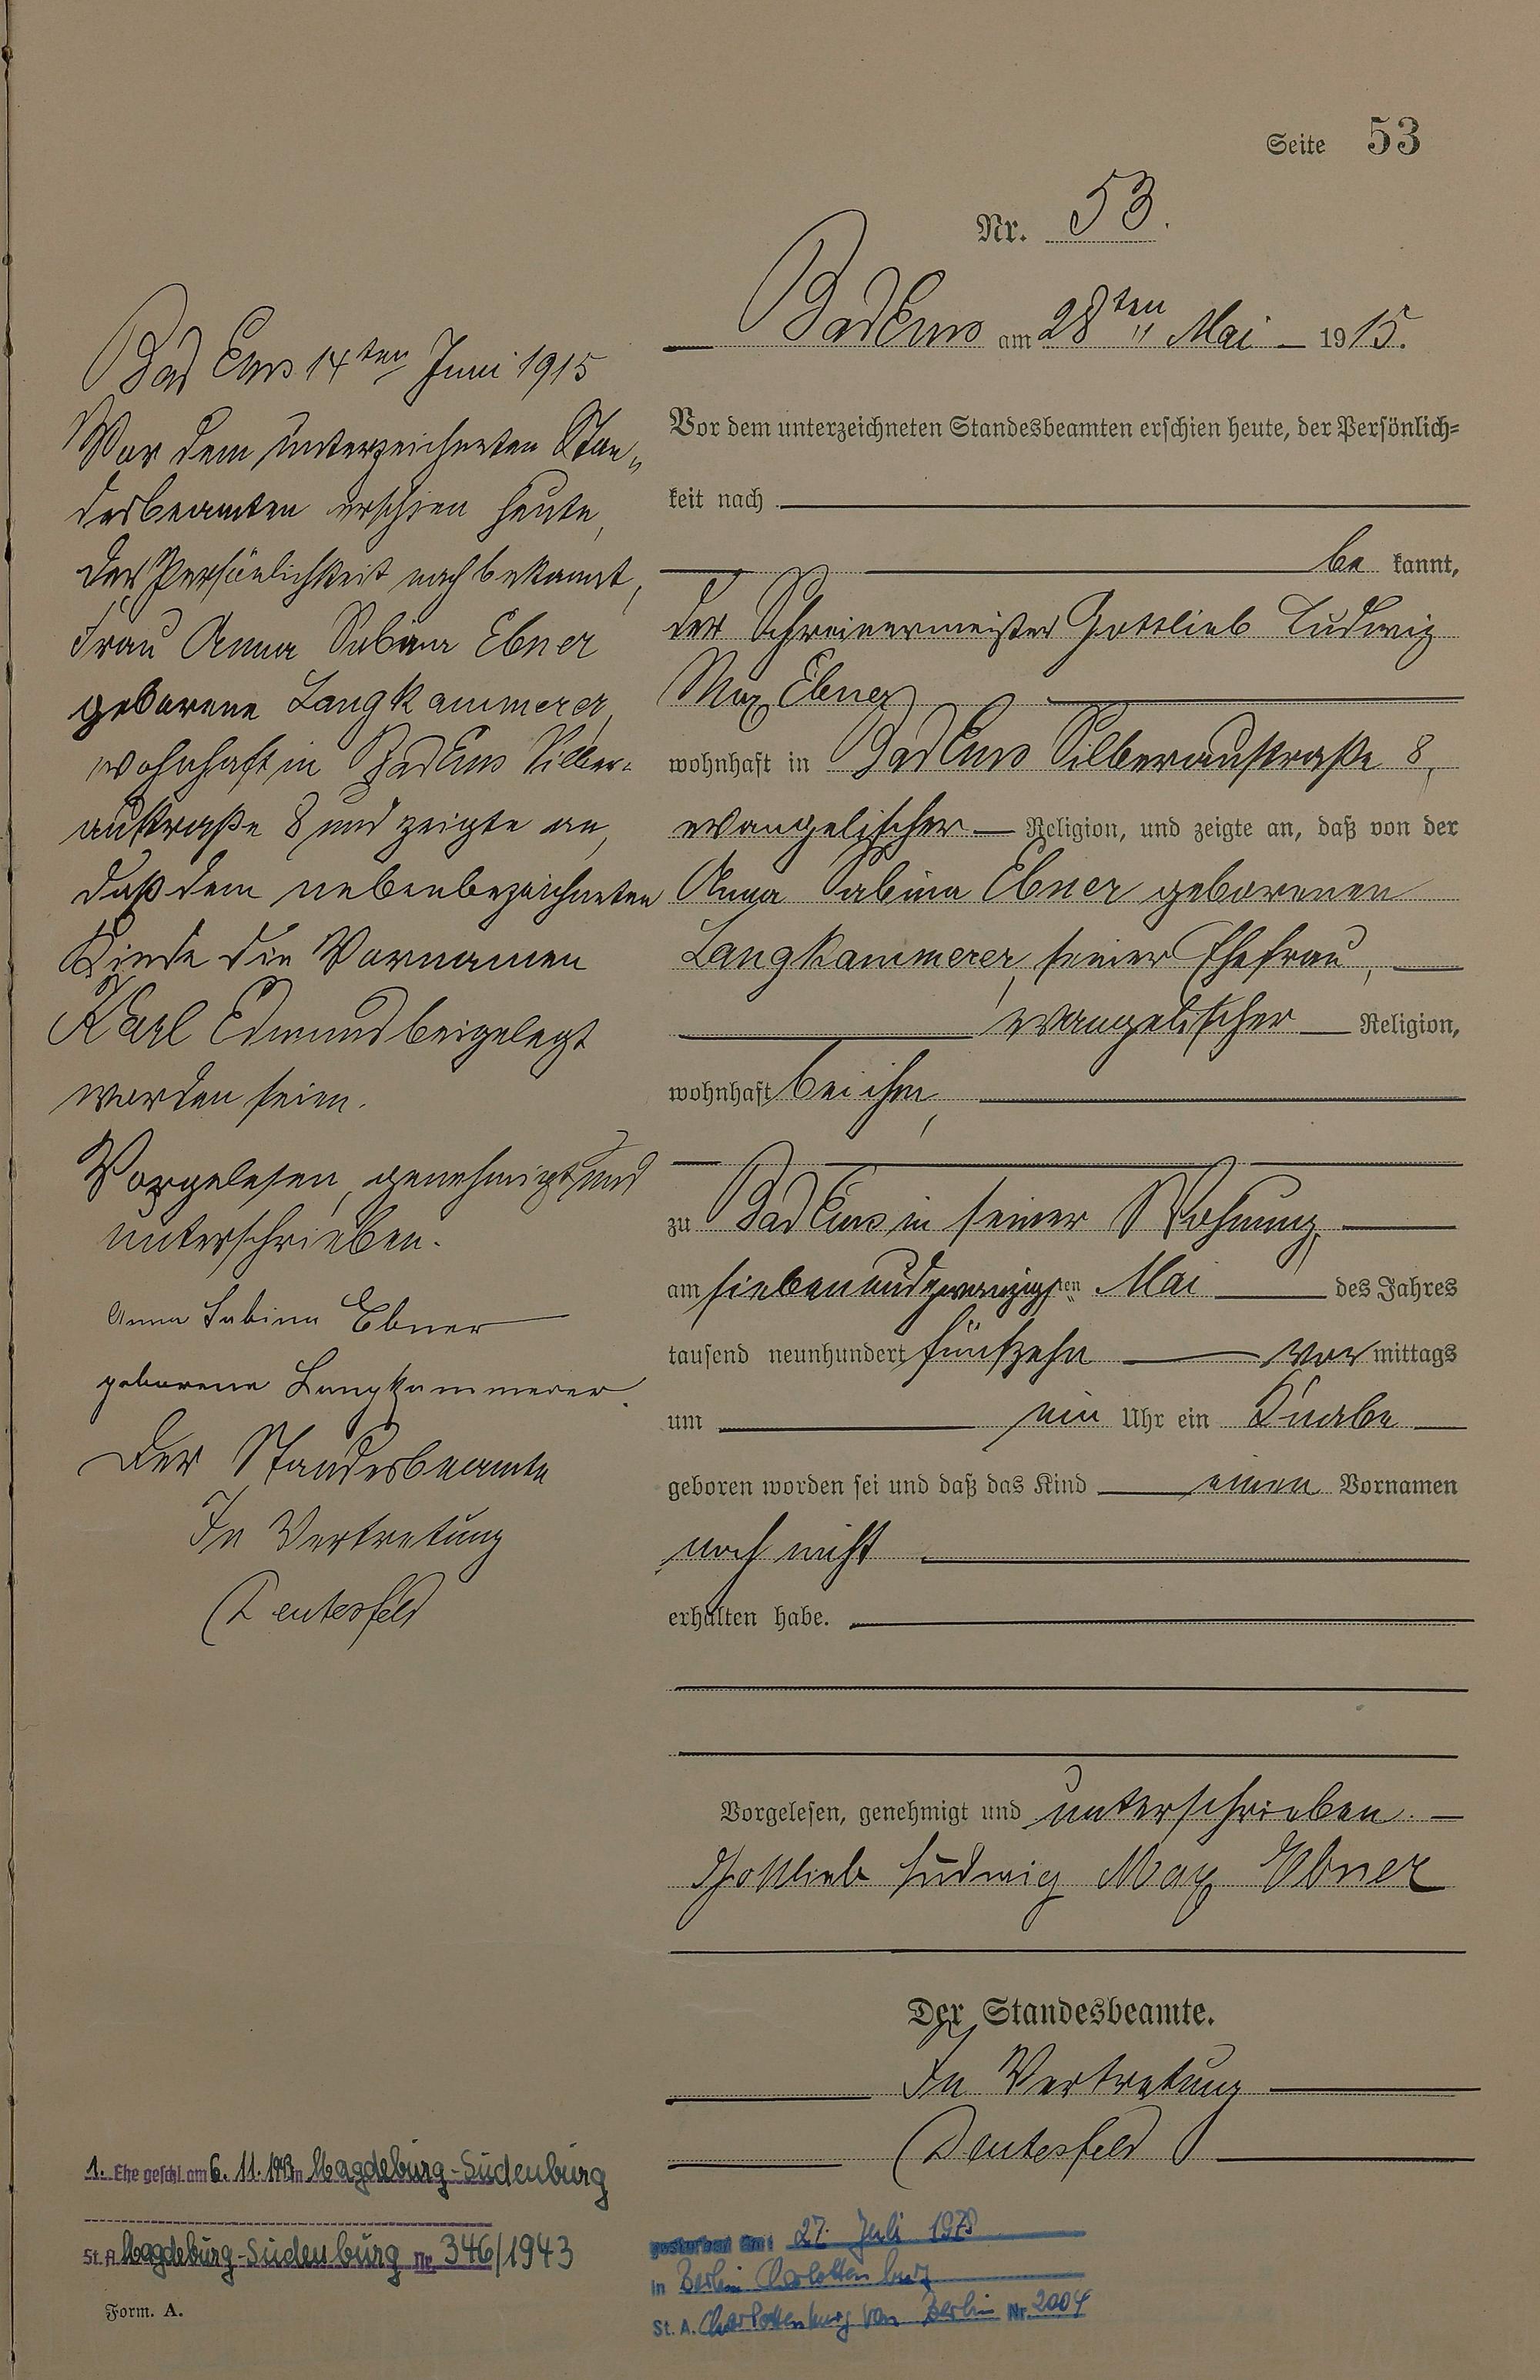 Seite 53
Nr. 53.
Bad Ems am 28ten Mai 1915.
Vor dem unterzeichneten Standesbeamten erschien heute, der Persönlich=
keit nach
be kannt,
der Schreinermeister Gottlieb Ludwig
Max Ebner
wohnhaft in Bad Ems Silberaustraße 8,
evangelischer Religion, und zeigte an, daß von der
Anna Sabina Ebner geborenen
Langkammerer, seiner Ehefrau,
evangelischer Religion,
wohnhaft bei ihm,
zu Bad Ems in seiner Wohnung,
am siebenundzwanzigsten Mai des Jahres
tausend neunhundert fünfzehn vor mittags
um ein Uhr ein Knabe
geboren worden sei und daß das Kind einen Vornamen
noch nicht
erhalten habe.
Vorgelesen, genehmigt und unterschrieben.
Gottlieb Ludwig Max Ebner
Der Standesbeamte.
In Vertretung
Bad Ems 14ten Juni 1915
Vor dem unterzeichneten Stan„
desbeamten erschien heute,
der Persönlichkeit nach bekannt,
Frau Anna Sabina Ebner
geborene Langkammerer,
wohnhaft in Bad Ems Silber=
austraße 8 und zeigte an,
daß dem nebenbezeichneten
Kinde die Vornamen
Karl Edmund beigelegt
worden seien.
Vorgelesen, genehmigt und
unterschrieben.
Anna Sabina Ebner
geborene Langkammerer.
Der Standesbeamte
In Vertretung
1. Ehe geschl. am 6. 11. 1943 in Magdeburg-Sudenburg
St. A. Magdeburg-Sudenburg Nr. 346/1943
Form. A.
gestorben am: 27. Juli 1978
in Berlin Charlottenburg
St. A. Charlottenburg von Berlin Nr. 2004